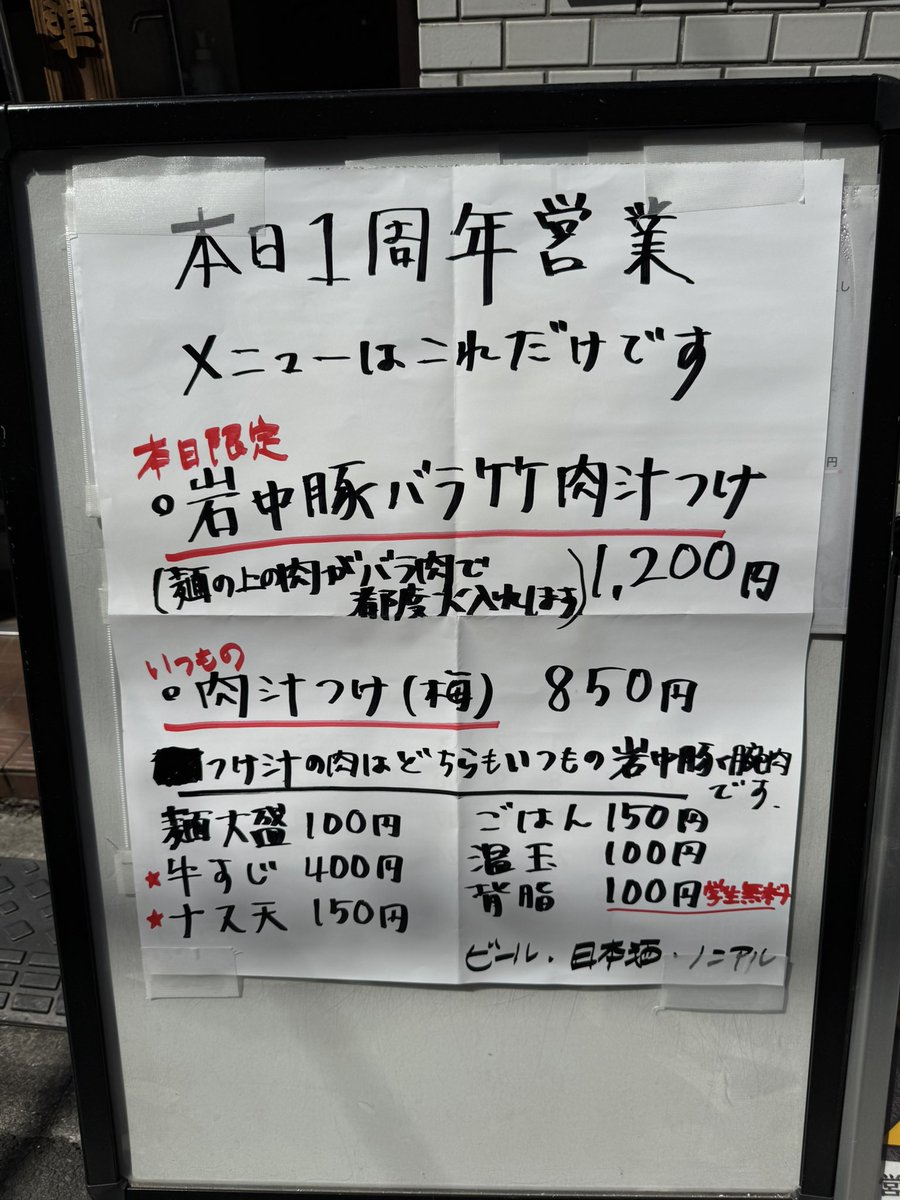 準
本日1周年営業
メニューはこれだけです
本日限定
岩中豚バラケケ肉汁つけ
1,200円
(麺の上の肉がバラ肉で
都度火入れします)
いつもの
肉汁つけ(梅) 850円
つけ汁の肉はどちらもいつもの岩中豚腕肉
です。
麺大盛 100円
★牛すじ 400円
★ナス天 150円
ごはん 150円
温玉 100円
背脂 100円 学生無料
ビール・日本酒・ノンアル
し
円
営